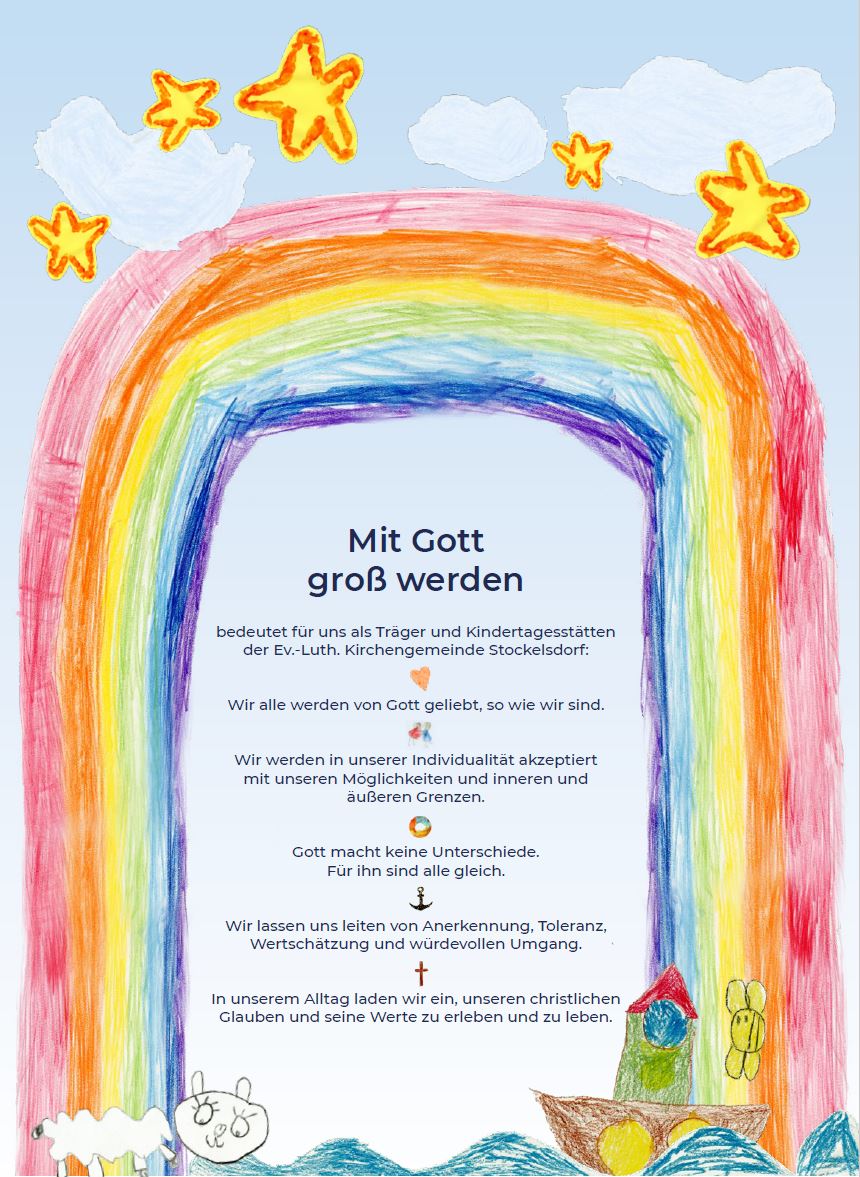 Mit Gott
groß werden
bedeutet für uns als Träger und Kindertagesstätten
der Ev.-Luth. Kirchengemeinde Stockelsdorf:
Wir alle werden von Gott geliebt, so wie wir sind.
Wir werden in unserer Individualität akzeptiert
mit unseren Möglichkeiten und inneren und
äußeren Grenzen.
Gott macht keine Unterschiede.
Für ihn sind alle gleich.
Wir lassen uns leiten von Anerkennung, Toleranz,
Wertschätzung und würdevollen Umgang.
In unserem Alltag laden wir ein, unseren christlichen
Glauben und seine Werte zu erleben und zu leben.